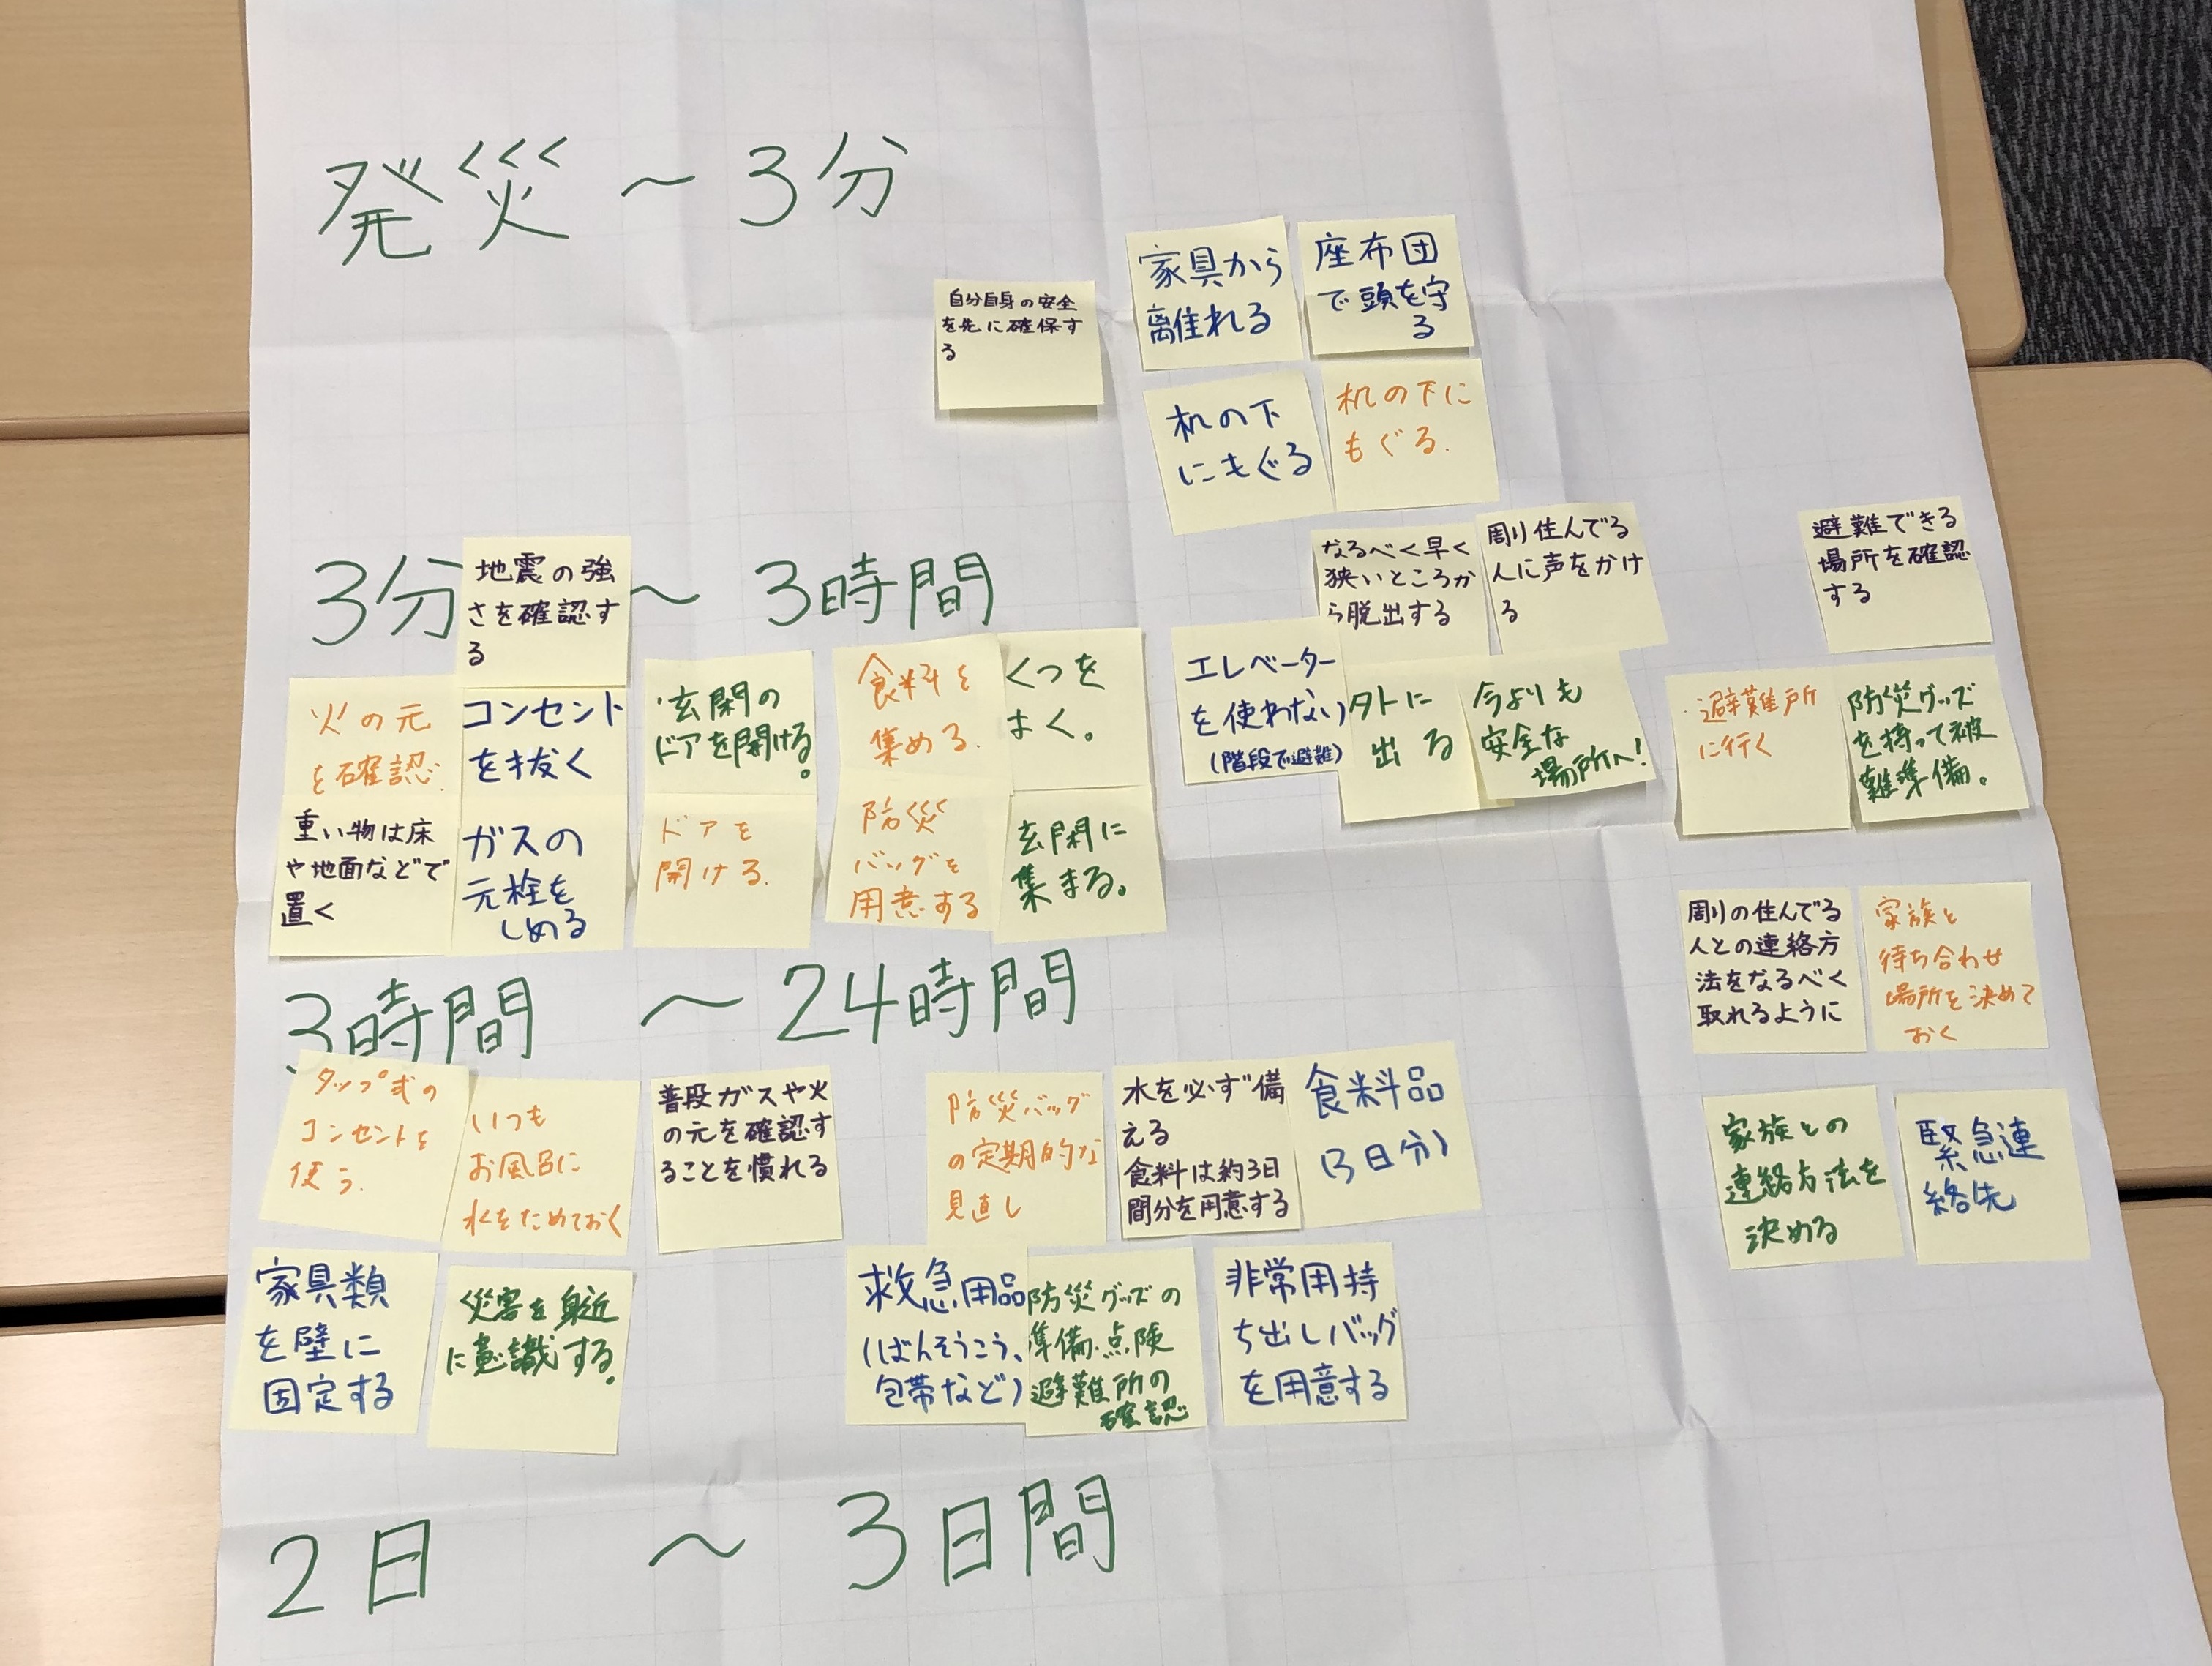 発災～3分
自分自身の安全
を先に確保す
る
家具から
離れる
座布団
で頭を守
る
机の下
にもぐる
机の下に
もぐる.
3分～3時間
地震の強
さを確認す
る
火の元
を確認.
コンセント
を抜く
重い物は床
や地面などで
置く
ガスの
元栓を
しめる
玄関の
ドアを開ける。
ドアを
開ける.
食料を
集める.
くつを
はく。
防災
バッグを
用意する
玄関に
集まる。
なるべく早く
狭いところか
ら脱出する
周り住んでる
人に声をかけ
る
エレベーター
を使わない
(階段で避難)
外に
出る
今よりも
安全な
場所へ!
避難できる
場所を確認
する
避難所
に行く
防災グッズ
を持って被
難準備。
周りの住んでる
人との連絡方
法をなるべく
取れるように
家族と
待ち合わせ
場所を決めて
おく
3時間～24時間
タップ式の
コンセントを
使う.
いつも
お風呂に
水をためておく
普段ガスや火
の元を確認す
ることを慣れる
防災バッグ
の定期的な
見直し
水を必ず備
える
食料は約3日
間分を用意する
食料品
(3日分)
家族との
連絡方法を
決める
緊急連
絡先
家具類
を壁に
固定する
災害を身近
に意識する。
救急用品
(ばんそうこう、
包帯など)
防災グッズの
準備.点険
避難所の
確認
非常用持
ち出しバッグ
を用意する
2日～3日間